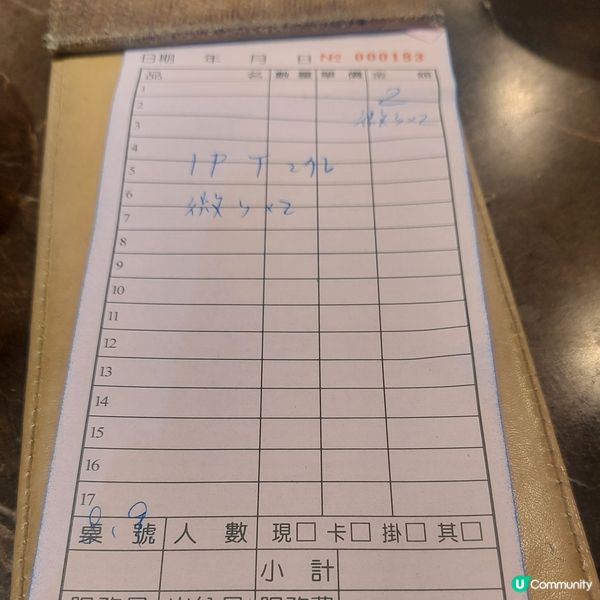 日期 年 月 日 № 000183
品 名 數量 單價 金 額
1
2 2
3 微ㄣx2
4
5 1P T
6
7 微ㄣx2
8
9
10
11
12
13
14
15
16
17
8.9
桌 號 人 數 現☐ 卡☐ 掛☐ 其☐
小 計
Community